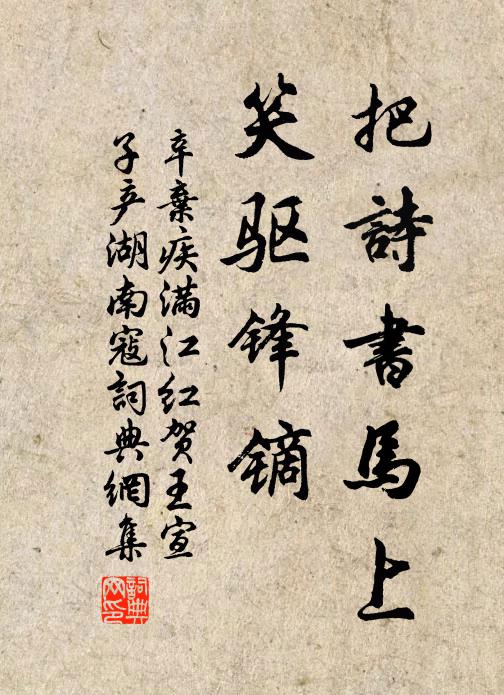 把詩書馬上
笑驱锋镝
辛棄疾满江红贺王宣
子产湖南寇詞典網集
詞典
网印